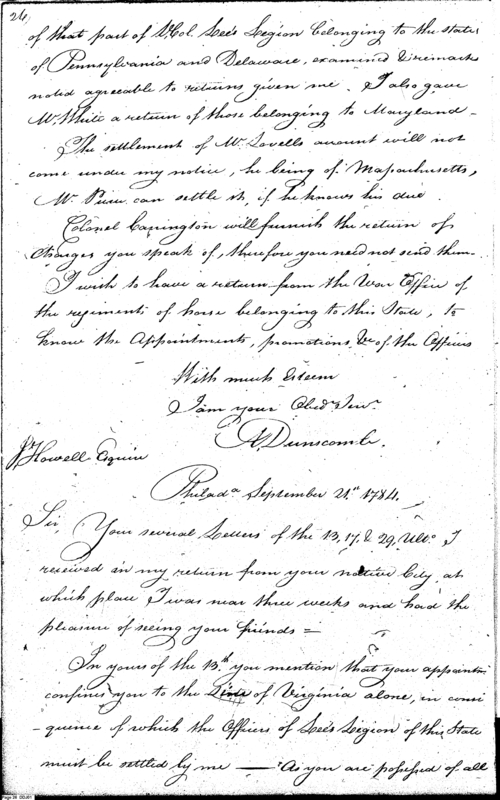 26,
of that part of Lt Col. Lee's Legion belonging to the state
of Pennsylvania and Delaware, examined & remarks
noted agreeable to returns given me. I also gave
Mr. White a return of those belonging to Maryland -
The settlement of Mr. Lovells account will not
come under my notice, he being of Massachusetts,
Mr. can settle it, if he knows his due.
Colonel Carrington will furnish the return of
Charges you speak of, therefore you need not send them -
I wish to have a return from the War Office of
the regiments of horse belonging to this State, to
know the Appointments, promotions &c of the Officers
With much Esteem
I am your Obed. Serv.
A Dunscomb.
Jn Howell Esquire
Philada. September 21st 1784.
Sir, Your several Letters of the 13, 17, & 29, Ulto. I
received on my return from your native City, at
which place I was near three weeks and had the
pleasure of seeing your friends =
In yours of the 13th you mention that your appoint-
confines you to the Line of Virginia alone, in consi
-quence of which the Officers of Lee's Legion of this State
must be settled by me — As you are possessed of all
Page 26